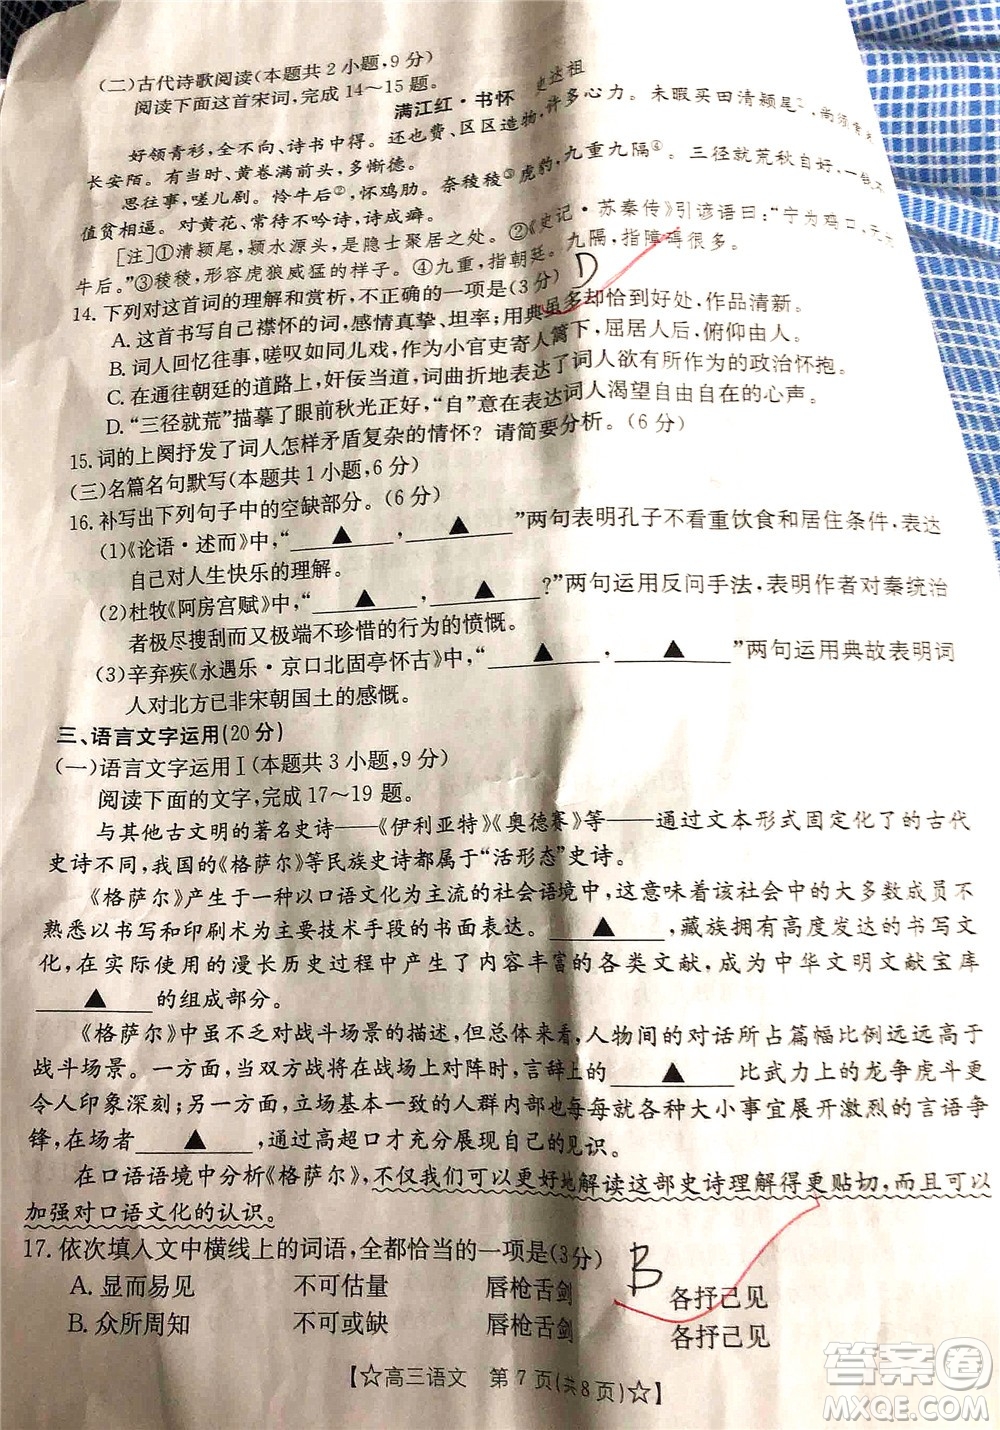 (二)古代诗歌阅读(本题共2小题,9分)
阅读下面这首宋词,完成14～15题。
满江红·书怀 史达祖
好领青衫,全不向、诗书中得。还也费、区区造物,许多心力。未暇买田清颍尾①,尚须索
长安陌。有当时、黄卷满前头,多惭德。
思往事,嗟儿剧。怜牛后②,怀鸡肋。奈稜稜③虎豹,九重九隔④。三径就荒秋自好,一钱不
值贫相逼。对黄花、常待不吟诗,诗成癖。
[注]①清颍尾,颍水源头,是隐士聚居之处。②《史记·苏秦传》引谚语曰:“宁为鸡口,无为
牛后。”③稜稜,形容虎狼威猛的样子。④九重,指朝廷。九隔,指障碍很多。
14. 下列对这首词的理解和赏析,不正确的一项是(3分) D
A. 这首书写自己襟怀的词,感情真挚、坦率;用典虽多却恰到好处,作品清新。
B. 词人回忆往事,嗟叹如同儿戏,接着写作小官吏寄人篱下,屈居人后,俯仰由人。
C. 在通往朝廷的道路上,奸佞当道,词曲折地表达了词人欲有所作为的政治怀抱。
D. “三径就荒”描摹了眼前秋光正好,“自”意在表达词人渴望自由自在的心声。
15. 词的上阕抒发了词人怎样矛盾复杂的情怀？请简要分析。(6分)
(三)名篇名句默写(本题共1小题,6分)
16. 补写出下列句子中的空缺部分。(6分)
(1)《论语·述而》中,“▲,▲”两句表明孔子不看重饮食和居住条件,表达
自己对人生快乐的理解。
(2)杜牧《阿房宫赋》中,“▲,▲?”两句运用反问手法,表明作者对秦统治
者极尽搜刮而又极端不珍惜的行为的愤慨。
(3)辛弃疾《永遇乐·京口北固亭怀古》中,“▲,▲”两句运用典故表明词
人对北方已非宋朝国土的感慨。
三、语言文字运用(20分)
(一)语言文字运用Ⅰ(本题共3小题,9分)
阅读下面的文字,完成17～19题。
与其他古文明的著名史诗——《伊利亚特》《奥德赛》等——通过文本形式固定化了的古代
史诗不同,我国的《格萨尔》等民族史诗都属于“活形态”史诗。
《格萨尔》产生于一种以口语文化为主流的社会语境中,这意味着该社会中的大多数成员不
熟悉以书写和印刷术为主要技术手段的书面表达。▲,藏族拥有高度发达的书写文
化,在实际使用的漫长历史过程中产生了内容丰富的各类文献,成为中华文明文献宝库
▲的组成部分。
《格萨尔》中虽不乏对战斗场景的描述,但总体来看,人物间的对话所占篇幅比例远远高于
战斗场景。一方面,当双方战马上对阵时,言辞上的▲比武力上的龙争虎斗更
令人印象深刻;另一方面,立场基本一致的人群内部也每每就各种大小事宜展开激烈的言语争
锋,在场者▲,通过高超口才充分展现自己的见识。
在口语语境中分析《格萨尔》,不仅我们可以更好地解读这部史诗理解得更贴切,而且可以
加强对口语文化的认识。
17. 依次填入文中横线上的词语,全都恰当的一项是(3分) B
A. 显而易见 不可估量 唇枪舌剑 各抒己见
B. 众所周知 不可或缺 唇枪舌剑 各抒己见
【☆高三语文 第7页(共8页)☆】
答案圈
MXQE.COM